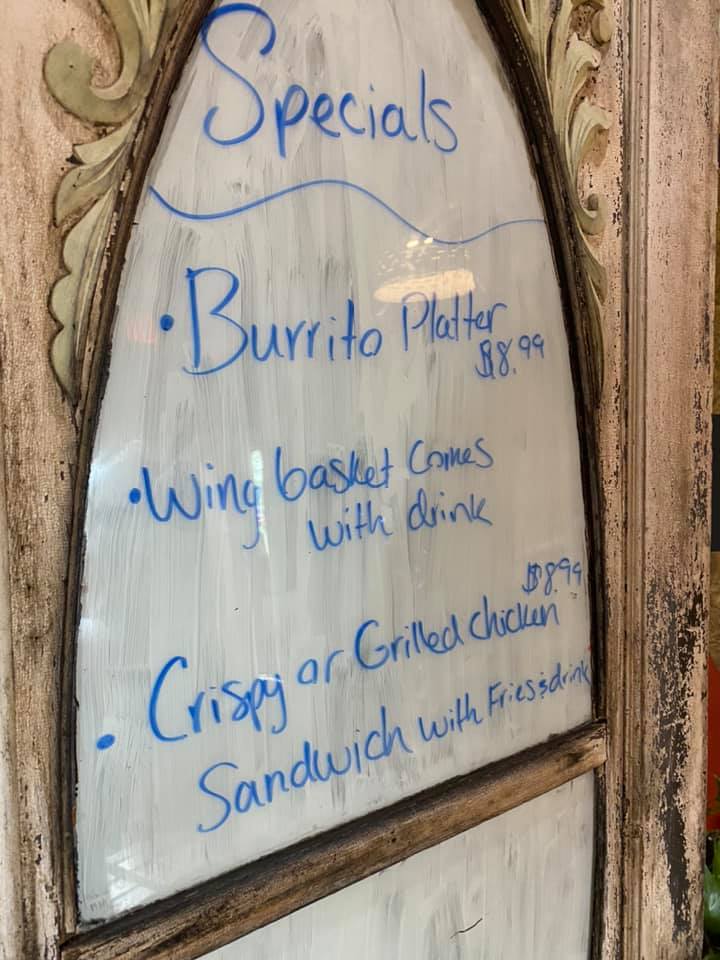 Specials
• Burrito Platter
$8.99
• Wing basket Comes
with drink
$8.99
• Crispy or Grilled chicken
Sandwich with Fries & drink